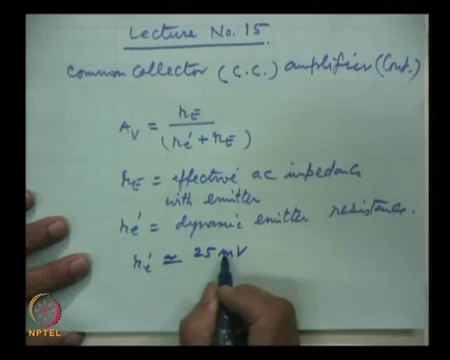 Lecture No. 15.
Common Collector (C.C.) amplifier (Cont.)
A_V = r_E / (r_e' + r_E)
r_E = effective ac impedance
with emitter
r_e' = dynamic emitter resistance.
r_e' ≃ 25 mV
NPTEL